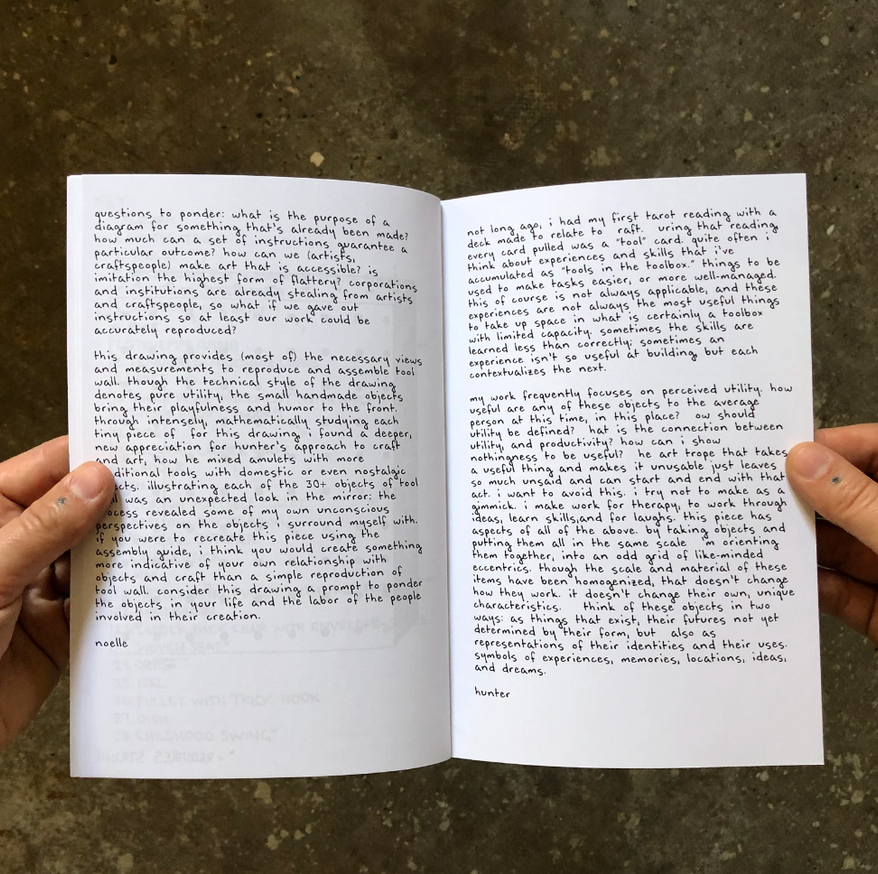 questions to ponder: what is the purpose of a
diagram for something that's already been made?
how much can a set of instructions guarantee a
particular outcome? how can we (artists,
craftspeople) make art that is accessible? is
imitation the highest form of flattery? corporations
and institutions are already stealing from artists
and craftspeople, so what if we gave out
instructions so at least our work could be
accurately reproduced?
this drawing provides (most of) the necessary views
and measurements to reproduce and assemble tool
wall. though the technical style of the drawing
denotes pure utility, the small handmade objects
bring their playfulness and humor to the front.
through intensely, mathematically studying each
tiny piece of  for this drawing i found a deeper,
new appreciation for hunter's approach to craft
and art, how he mixed amulets with more
ditional tools with domestic or even nostalgic
cts. illustrating each of the 30+ objects of tool
was an unexpected look in the mirror: the
ocess revealed some of my own unconscious
perspectives on the objects i surround myself with.
if you were to recreate this piece using the
assembly guide, i think you would create something
more indicative of your own relationship with
objects and craft than a simple reproduction of
tool wall. consider this drawing a prompt to ponder
the objects in your life and the labor of the people
involved in their creation.
noelle
not long ago, i had my first tarot reading with a
deck made to relate to  raft.  uring that reading
every card pulled was a "tool" card. quite often i
think about experiences and skills that i've
accumulated as "tools in the toolbox." things to be
used to make tasks easier, or more well-managed.
this of course is not always applicable, and these
experiences are not always the most useful things
to take up space in what is certainly a toolbox
with limited capacity. sometimes the skills are
learned less than correctly; sometimes an
experience isn't so useful at building, but each
contextualizes the next.
my work frequently focuses on perceived utility. how
useful are any of these objects to the average
person at this time, in this place?  ow should
utility be defined?  hat is the connection between
utility, and productivity? how can i show
nothingness to be useful?  he art trope that takes
a useful thing and makes it unusable just leaves
so much unsaid and can start and end with that
act. i want to avoid this. i try not to make as a
gimmick. i make work for therapy, to work through
ideas, learn skills,and for laughs. this piece has
aspects of all of the above. by taking objects and
putting them all in the same scale  'm orienting
them together, into an odd grid of like-minded
eccentrics. though the scale and material of these
items have been homogenized, that doesn't change
how they work. it doesn't change their own, unique
characteristics.  Think of these objects in two
ways: as things that exist, their futures not yet
determined by their form, but  also as
representations of their identities and their uses.
symbols of experiences, memories, locations, ideas,
and dreams.
hunter